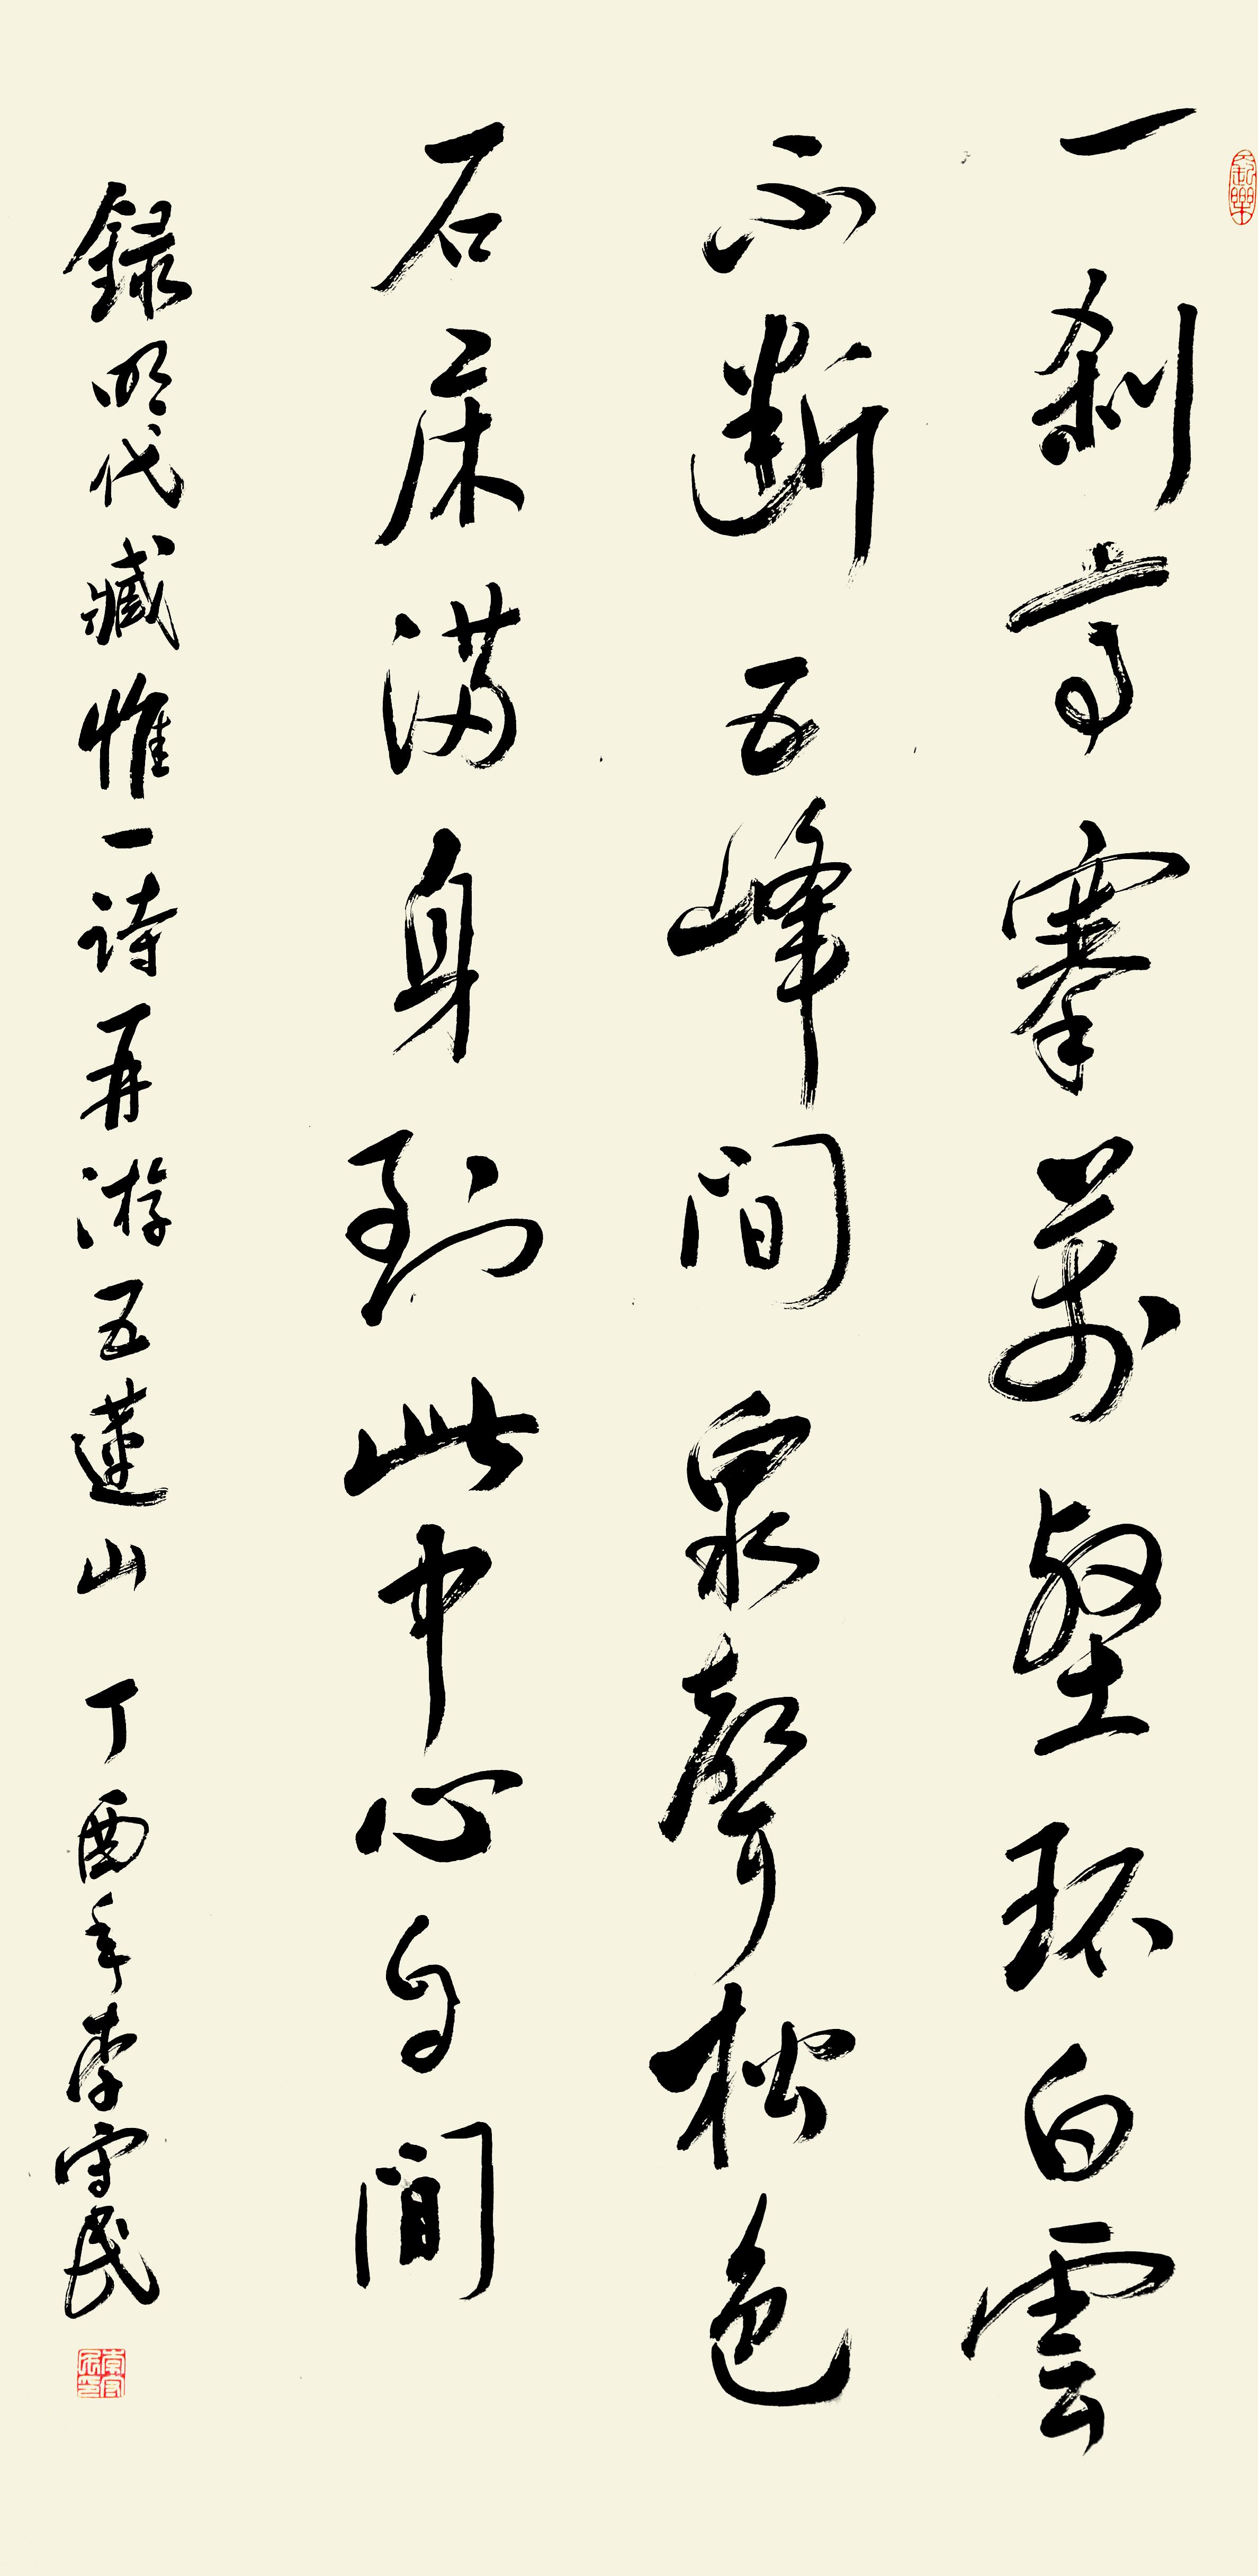 一刹高搴萬壑环白雲
不断五峰间泉聲松色
石床满身到此中心自閒
録明代臧惟一诗再游五蓮山 丁酉年李守民